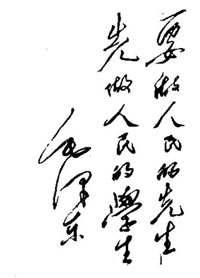 要做人民的先生
先做人民的學生
毛澤东